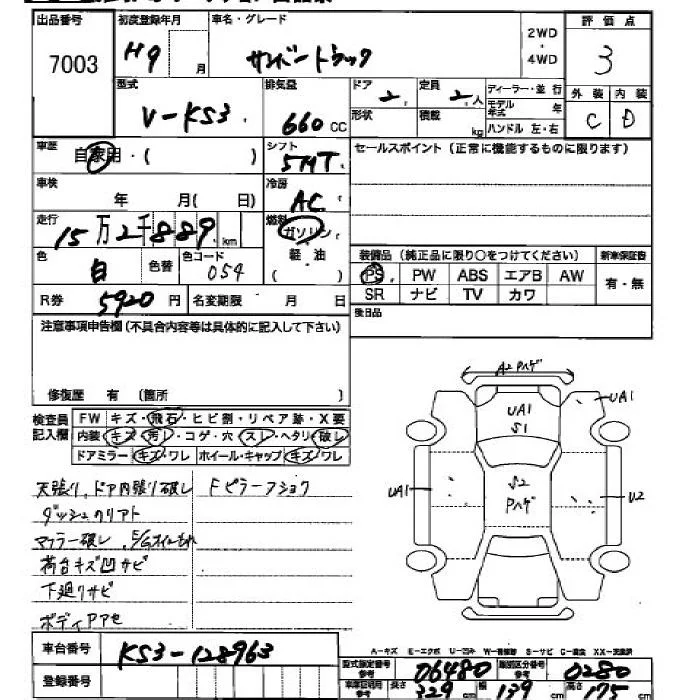 出品番号 初度登録年月 車名・グレード 2WD・4WD 評価点
7003 H9 月 サンバートラック 3
型式 排気量 ドア 定員 ディーラー・並行 外装 内装
V-KS3 660 CC 2 2人 モデル年式 年 C D
形状 積載 kg ハンドル 左・右
車歴 自家用・( ) シフト 5MT セールスポイント(正常に機能するものに限ります)
車検 年 月( 日) 冷房 AC
走行 15万2千889km 燃料 ガソリン 軽油
色 白 色替 色コード 054
装備品(純正品に限り○をつけてください) 新車保証書
PS PW ABS エアB AW 有・無
SR ナビ TV カワ
R券 5920円 名変期限 月 日 後日品
注意事項申告欄(不具合内容等は具体的に記入して下さい)
修復歴 有 (箇所
検査員記入欄 FW キズ・飛石・ヒビ割・リペア跡・X要
内装 キズ・汚レ・コゲ・穴・スレ・ヘタリ・破レ
ドアミラー キズ・ワレ ホイール・キャップ キズ・ワレ
天張り、ドア内張り破レ Fピラーフショク
ダッシュクリアト
マフラー破レ、E/Gオイルもれ
荷台キズ凹サビ
下廻りサビ
ボディアアセ
A2Pハゲ
UA1
UA1
S1
S2
Pハゲ
UA1
U2
車台番号 KS3-128963
登録番号
A-キズ E-エクボ U-凹み W-補修跡 S-サビ C-腐食 XX-交換済
型式指定番号 参考 06480 類別区分番号 参考 0280
車庫証明用 参考 長さ 329 cm 幅 139 cm 高さ 175 cm